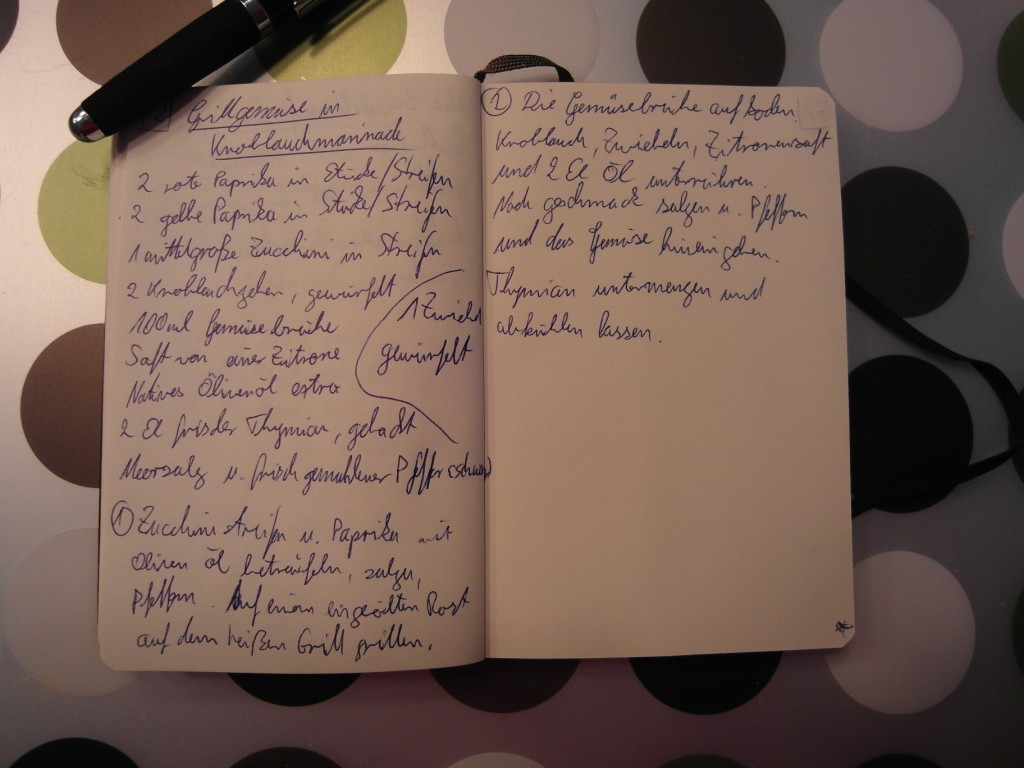 Grillgemüse in
Knoblauchmarinade
2 rote Paprika in Stücke/Streifen
2 gelbe Paprika in Stücke/Streifen
1 mittelgroße Zucchini in Streifen
2 Knoblauchzehen, gewürfelt
1 Zwiebel
gewürfelt
100ml Gemüsebrühe
Saft von einer Zitrone
Natives Olivenöl extra
2 El frischer Thymian, gehackt
Meersalz u. frisch gemahlener Pfeffer (schwarz)
① Zucchinistreifen u. Paprika mit
Oliven öl beträufeln, salzen,
Pfeffern. Auf einem eingeölten Rost
auf dem heißen Grill grillen.
② Die Gemüsebrühe aufkochen.
Knoblauch, Zwiebeln, Zitronensaft
und 2 El Öl unterrühren.
Nach geschmack salzen u. Pfeffern
und das Gemüse hineingeben.
Thymian untermengen und
abkühlen lassen.